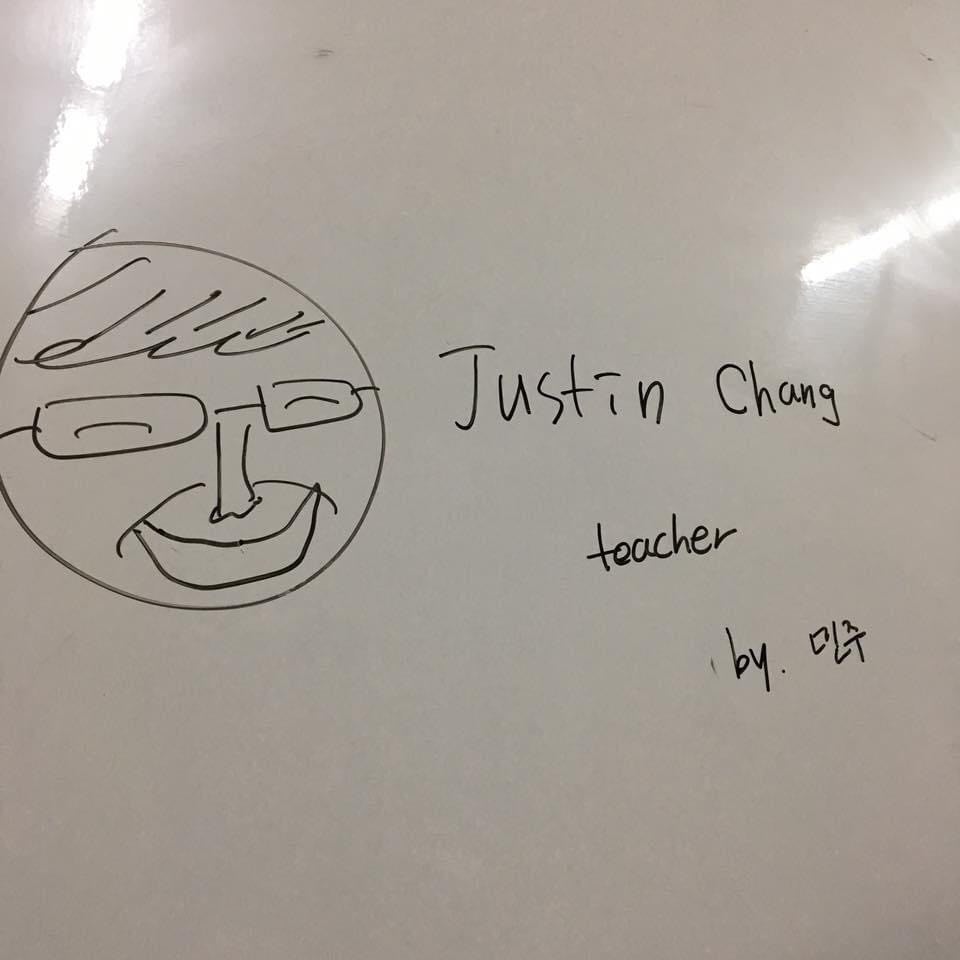 Justin Chang
teacher
by. 민주